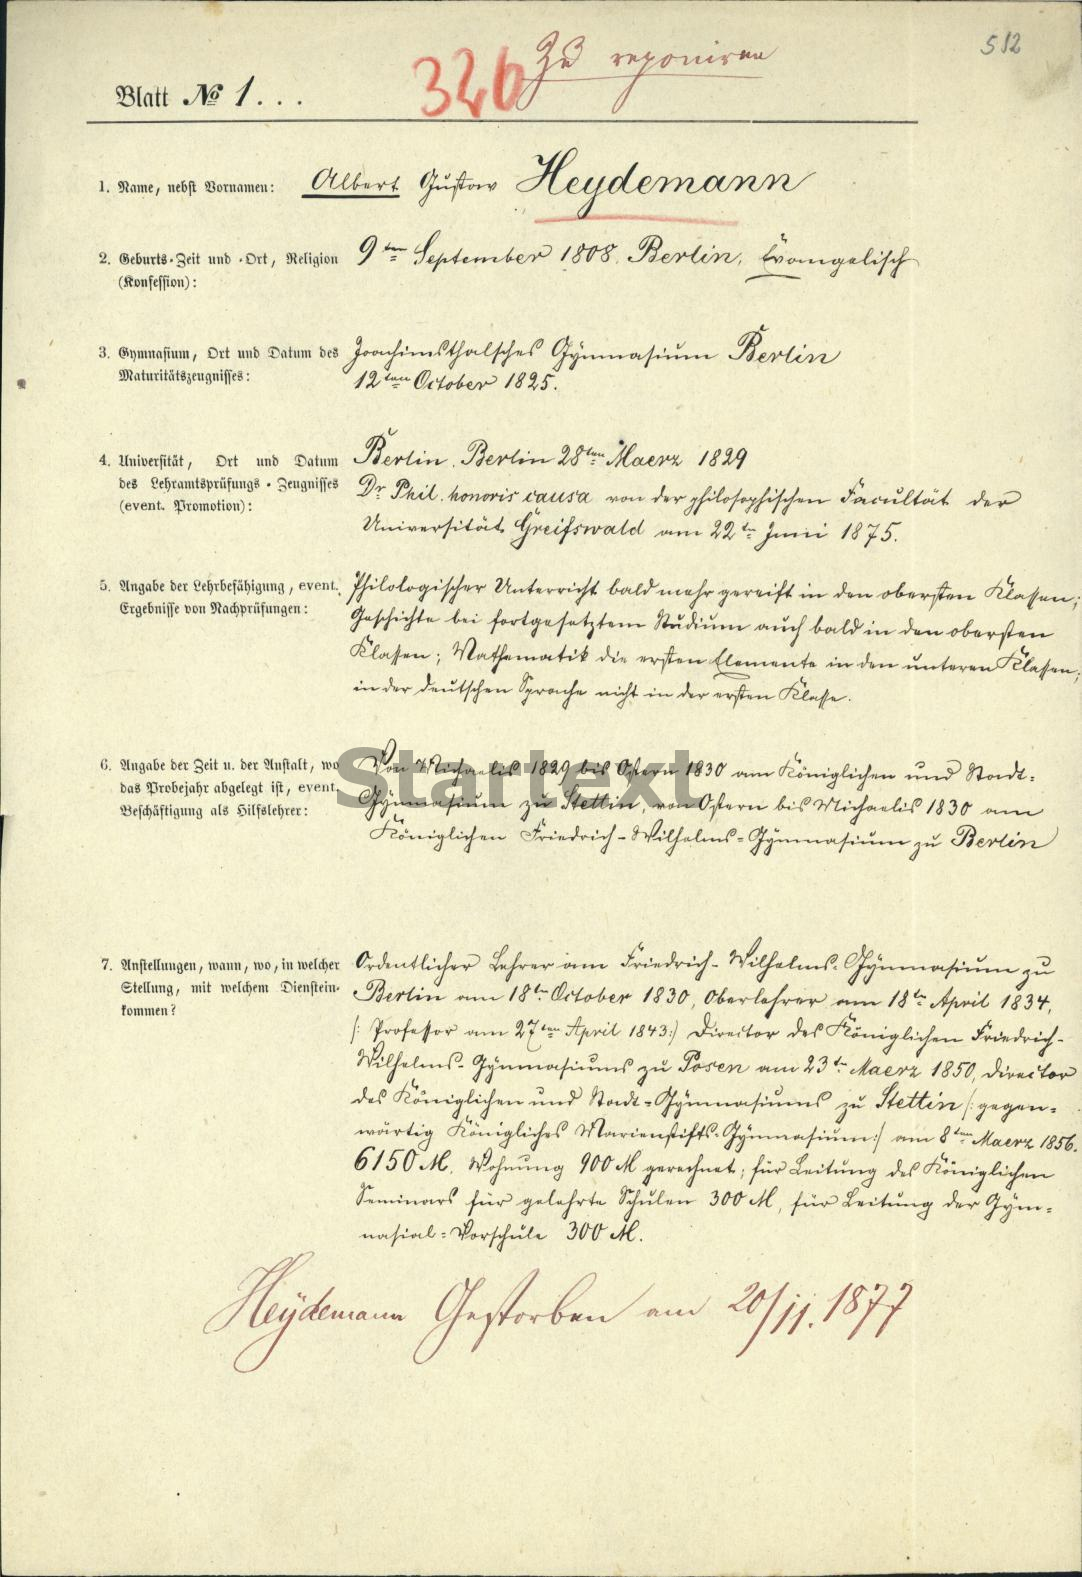 512
326 Zu reponiren
Blatt № 1...
1. Name, nebst Vornamen: Albert Gustav Heydemann
2. Geburts-Zeit und -Ort, Religion 9ten September 1808. Berlin, Evangelisch
(Konfession):
3. Gymnasium, Ort und Datum des Joachimsthalsches Gÿmnasium Berlin
Maturitätszeugnisses: 12ten October 1825.
4. Universität, Ort und Datum Berlin. Berlin 28ten Maerz 1829
des Lehramtsprüfungs-Zeugnisses Dr Phil. honoris causa von der philosophischen Facultät der
(event. Promotion): Universität Greifswald am 22ten Juni 1875.
5. Angabe der Lehrbefähigung, event. Philologischer Unterricht bald mehr gereift in den obersten Klassen;
Ergebnisse von Nachprüfungen: Geschichte bei fortgesetztem Studium auch bald in den obersten
Klassen; Mathematik die ersten Elemente in den unteren Klassen;
in der deutschen Sprache nicht in der ersten Klasse.
6. Angabe der Zeit u. der Anstalt, wo Von Michaelis 1829 bis Ostern 1830 am Königlichen und Stadt-
das Probejahr abgelegt ist, event. Gÿmnasium zu Stettin, von Ostern bis Michaelis 1830 am
Beschäftigung als Hilfslehrer: Königlichen Friedrich-Wilhelms-Gÿmnasium zu Berlin
Startext
7. Anstellungen, wann, wo, in welcher Ordentlicher Lehrer am Friedrich-Wilhelms-Gÿmnasium zu
Stellung, mit welchem Dienstein- Berlin am 18ten October 1830, Oberlehrer am 18ten April 1834,
kommen? /: Professor am 27ten April 1843:/ Director des Königlichen Friedrich-
Wilhelms-Gÿmnasiums zu Posen am 23ten Maerz 1850, Director
des Königlichen und Stadt-Gÿmnasiums zu Stettin /: gegen-
wärtig Königliches Marienstifts-Gÿmnasium:/ am 8ten Maerz 1856.
6150 M. Wohnung 900 M gerechnet; für Leitung des Königlichen
Seminars für gelehrte Schulen 300 M, für Leitung der Gÿm-
nasial-Vorschule 300 M.
Heÿdemann Gestorben am 20/11. 1877